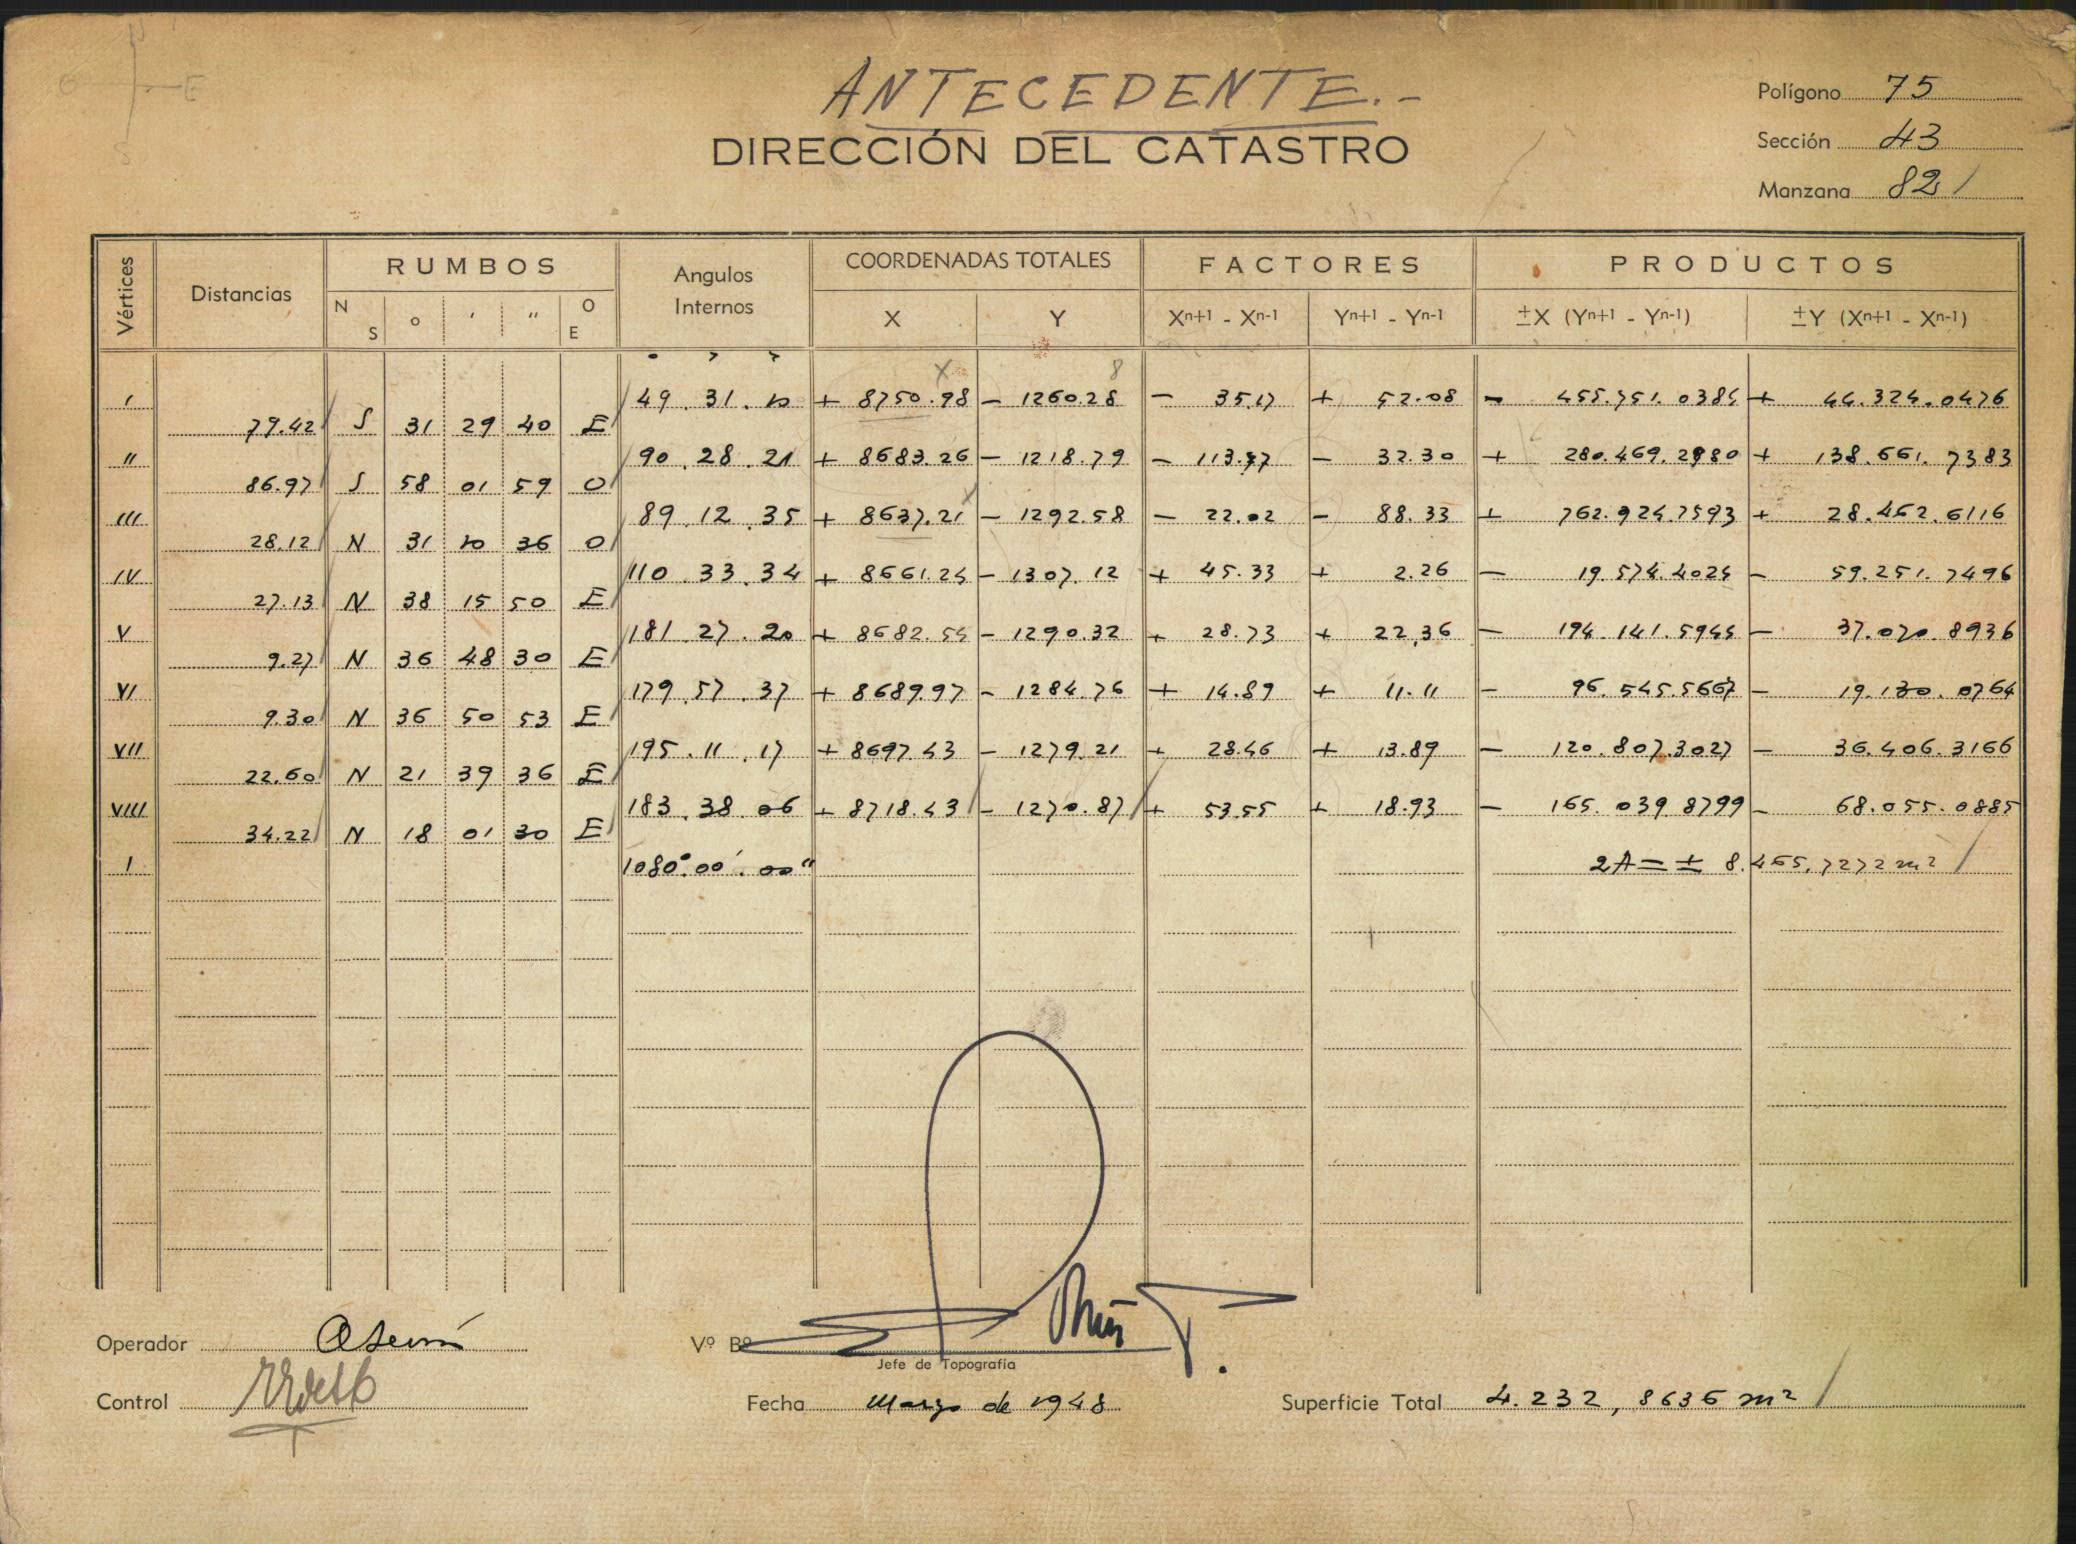 N
O E
S
ANTECEDENTE.-
DIRECCIÓN DEL CATASTRO
Polígono 75
Sección 43
Manzana 82
Vértices Distancias RUMBOS Angulos Internos COORDENADAS TOTALES FACTORES PRODUCTOS
N S ° ' " O E X Y Xn+1 - Xn-1 Yn+1 - Yn-1 ±X (Yn+1 - Yn-1) ±Y (Xn+1 - Xn-1)
I 49.31.10 + 8750.98 - 1260.28 - 35.17 + 52.08 - 455.751.0384 + 44.324.0476
79.42 S 31 29 40 E
II 90.28.21 + 8683.26 - 1218.79 - 113.77 - 32.30 + 280.469.2980 + 138.661.7383
86.97 S 58 01 59 O
III 89.12.35 + 8637.21 - 1292.58 - 22.02 - 88.33 + 762.924.7593 + 28.462.6116
28.12 N 31 10 36 O
IV 110.33.34 + 8661.24 - 1307.12 + 45.33 + 2.26 - 19.574.4024 - 59.251.7496
27.13 N 38 15 50 E
V 181.27.20 + 8682.54 - 1290.32 + 28.73 + 22.36 - 194.141.5944 - 37.070.8936
9.27 N 36 48 30 E
VI 179.57.37 + 8689.97 - 1284.76 + 14.89 + 11.11 - 96.545.5667 - 19.130.0764
9.30 N 36 50 53 E
VII 195.11.17 + 8697.43 - 1279.21 + 28.46 + 13.89 - 120.807.3027 - 36.406.3166
22.60 N 21 39 36 E
VIII 183.38.06 + 8718.43 - 1270.87 + 53.55 + 18.93 - 165.039.8799 - 68.055.0885
34.22 N 18 01 30 E
I 1080°.00'.00" 2A = ± 8.465.7272 m²
Operador
Vº Bº
Jefe de Topografía
Control
Fecha Marzo de 1948
Superficie Total 4.232,8636 m²